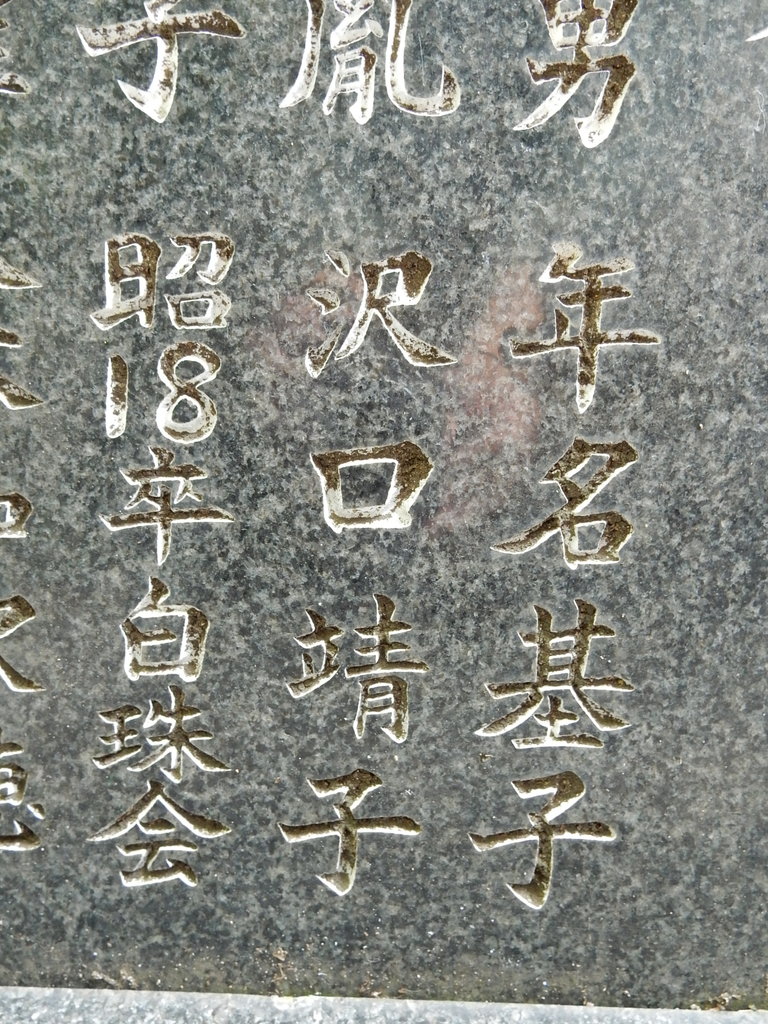 男
年名基子
胤
沢口靖子
子
昭18卒白珠会